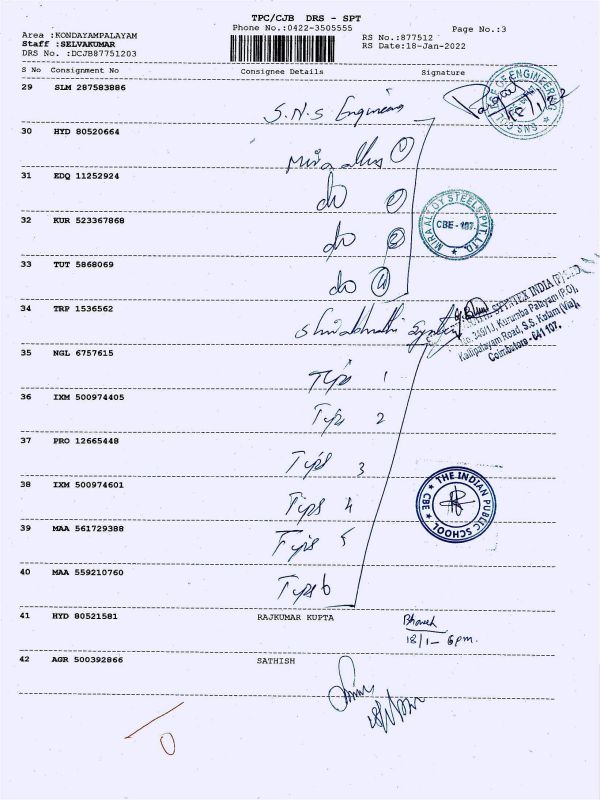 TPC/CJB DRS - SPT
Phone No.:0422-3505555
Page No.:3
Area :KONDAYAMPALAYAM
Staff :SELVAKUMAR
DRS No. :DCJB87751203
RS No.:877512
RS Date:18-Jan-2022
S No Consignment No Consignee Details Signature
29 SLM 287583886
S.N.S Engineering
18/1/22
30 HYD 80520664
31 EDQ 11252924
do
MIRA ALLOY STEELS PVT. LTD. CBE - 107.
32 KUR 523367868
do
33 TUT 5868069
do 4
34 TRP 1536562
SYNTEX INDIA (P) LTD
No. 349/1J, Kurumba Palayam (P.O),
Kalipalayam Road, S.S. Kulam (Via),
Coimbatore - 641 107.
35 NGL 6757615
Tips 1
36 IXM 500974405
Tips 2
37 PRO 12665448
Tips 3
38 IXM 500974601
Tips 4
THE INDIAN PUBLIC SCHOOL CBE
39 MAA 561729388
Tips 5
40 MAA 559210760
Tips 6
41 HYD 80521581 RAJKUMAR KUPTA
Bhavesh
18/1- 6pm.
42 AGR 500392866 SATHISH